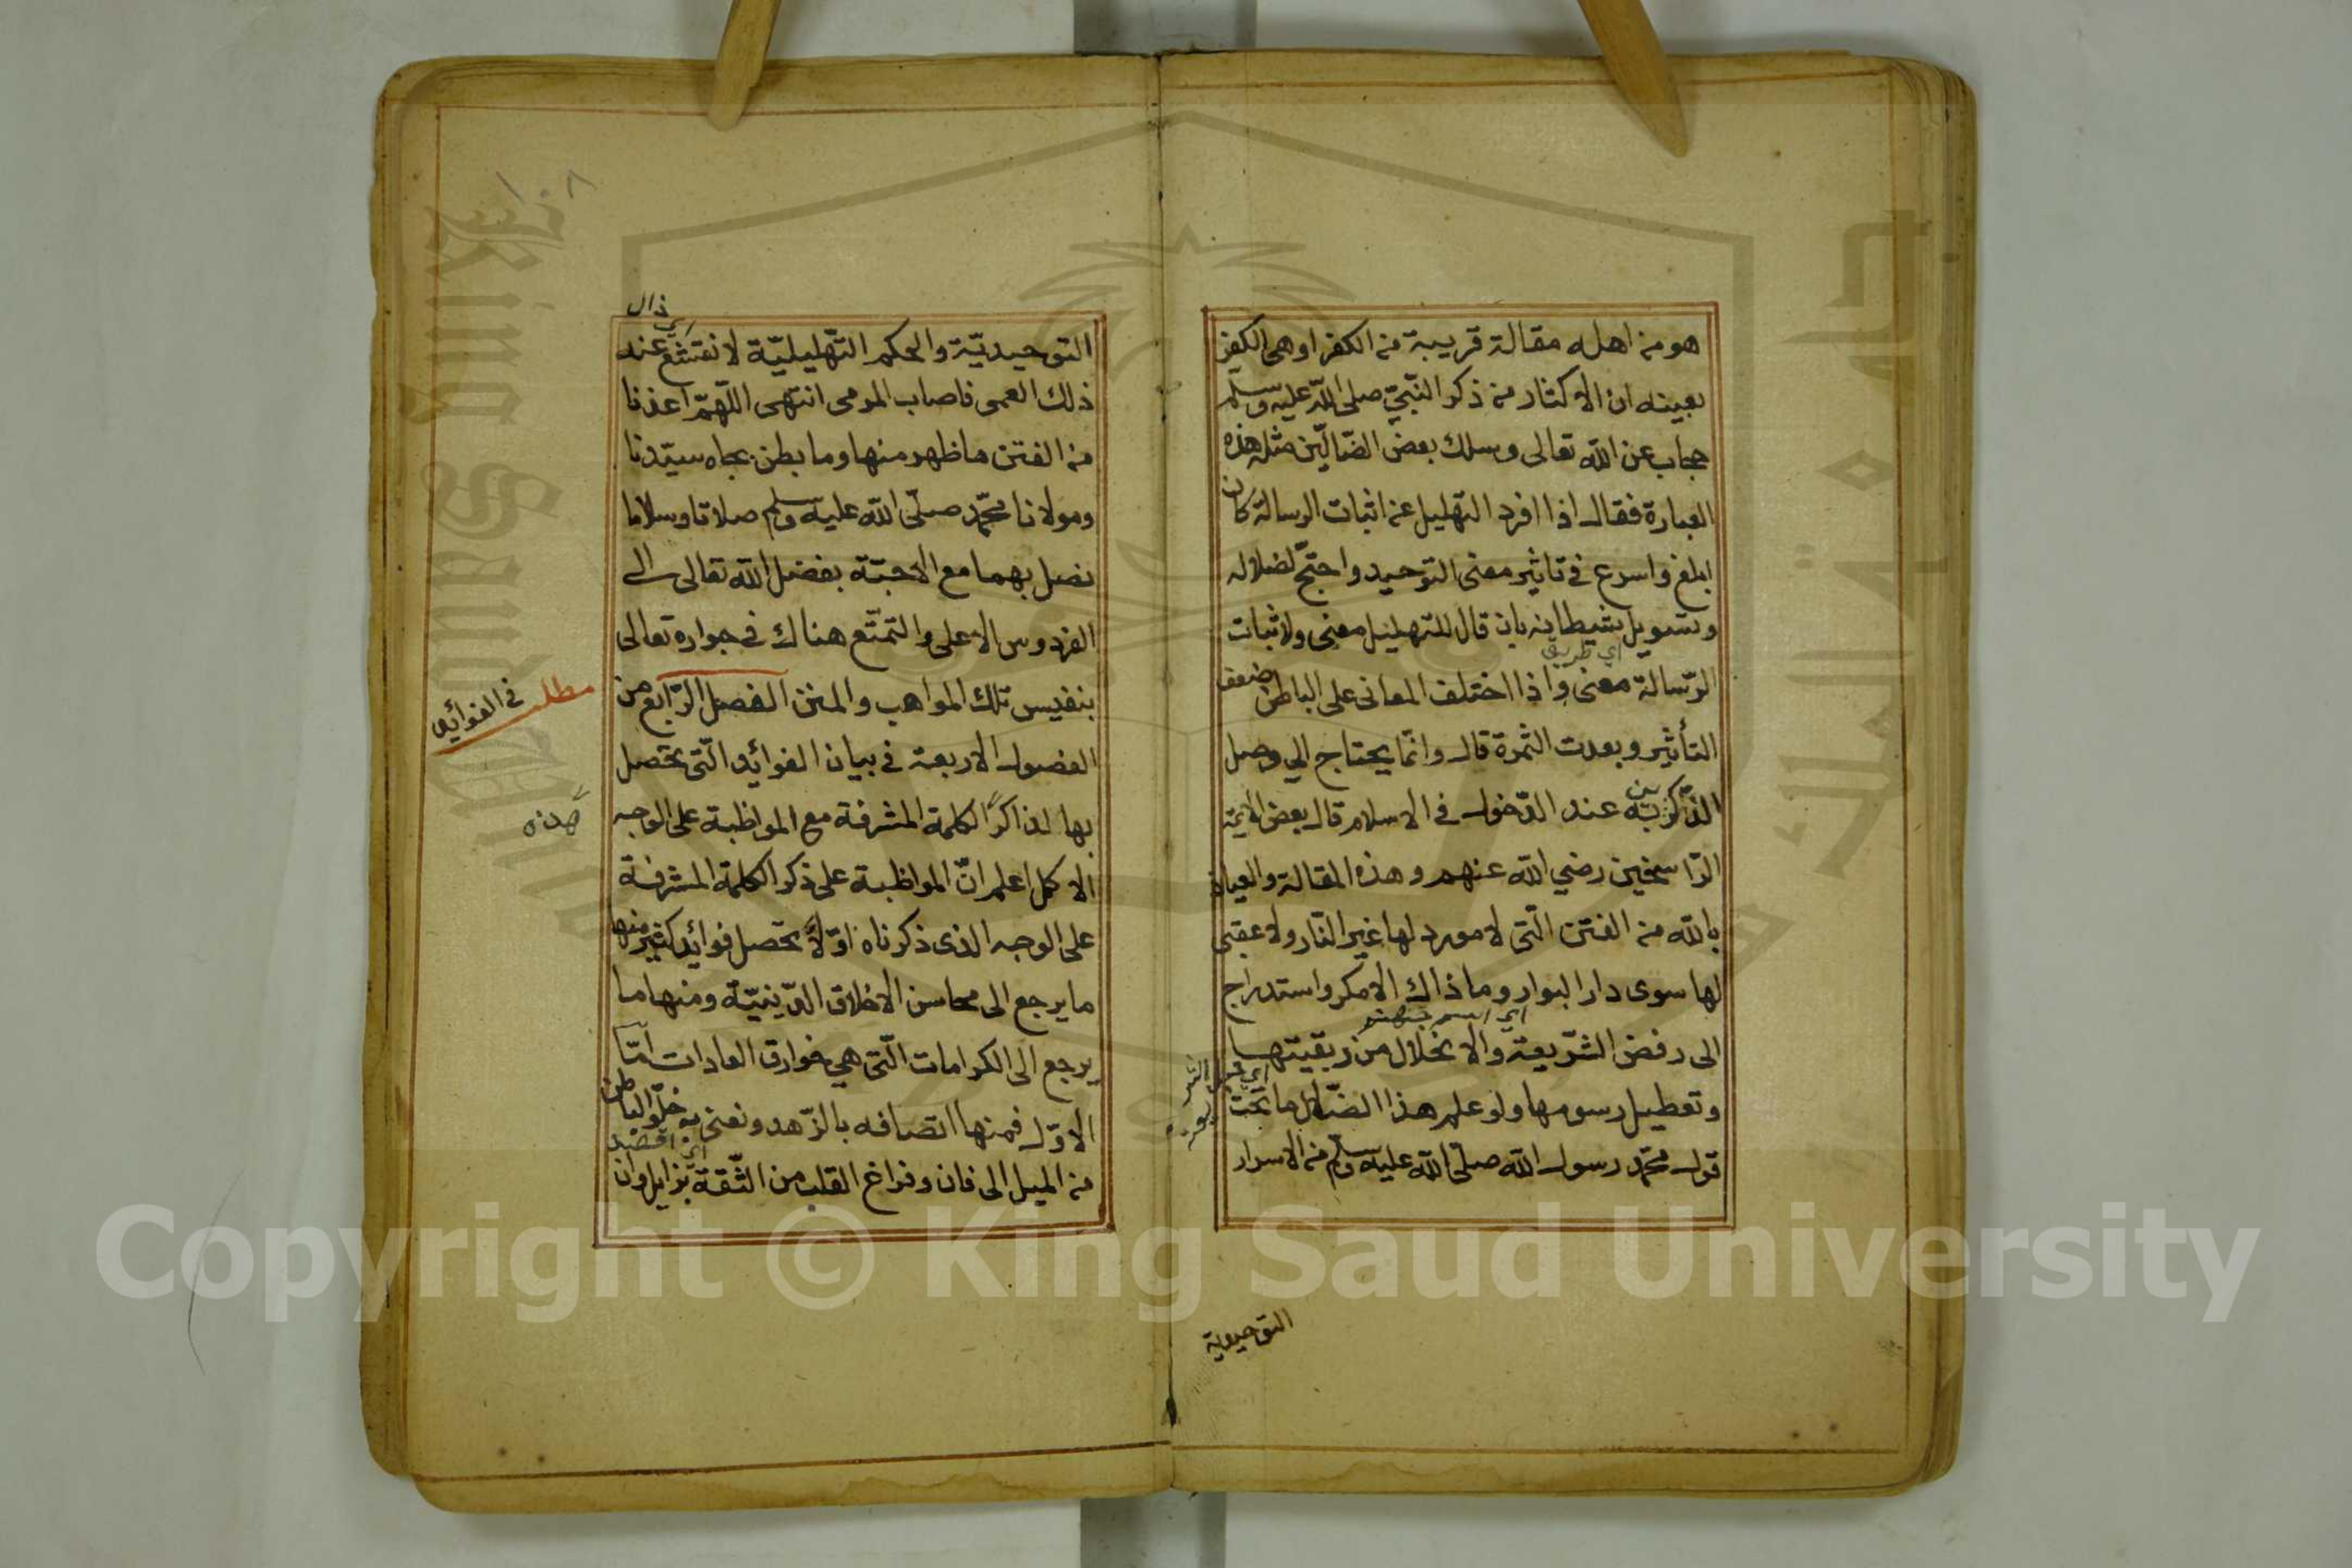 هو من اهله مقالة قريبة من الكفر او هى الكفر
بعينه ان الاكثار من ذكر النّبيّ صلى اللّه عليه وسلم
حجاب عن اللّه تعالى وسلك بعض الضّالّين مثل هذه
العبارة فقال اذا افرد التهليل عن اثبات الرسالة كان
ابلغ واسرع فى تاثير معنى التوحيد واحتجّ لضلاله
وتسويل شيطانه بان قال للتهليل معنى ولاثبات
اي طريق
الرّسالة معنى واذا اختلف المعانى على الباطن ضعف
التأثير وبعدت الثمرة قال وانّما يحتاج الي وصل
الذّكرين به عند الدّخول فى الاسلام قال بعض الائمة
الرّاسخين رضي اللّه عنهم وهذه المقالة والعياذ
باللّه من الفتن الّتى لا مورد لها غير النّار ولا عقبى
لها سوى دار البوار وما ذاك الا مكر واستدراج
اي اسم جهنم
الى رفض الشّريعة والانحلال من ربقيتها
وتعطيل رسومها ولو علم هذا الضّال ما تحت
قول محمّد رسول اللّه صلّى اللّه عليه وسلم من الاسرار
التوحيدية
ا ٠ ٨
اى زال
التوحيديّة والحكم التّهليليّة لانقشع عنه
ذلك العمى فاصاب المرمى انتهى اللّهمّ اعذنا
من الفتن ما ظهر منها وما بطن بجاه سيّدنا
ومولانا محمّد صلّى اللّه عليه وسلم صلاتا وسلاما
نصل بهما مع الاحبّة بفضل اللّه تعالى الى
الفردوس الاعلى والتمتّع هناك فى جواره تعالى
بنفيس تلك المواهب والمنن الفصل الرّابع من
مطلب فى الفوائد
الفصول الاربعة فى بيان الفوائد الّتى تحصل
بها لذاكر الكلمة المشرفة مع المواظبة على الوجه
هذه
الاكمل اعلم انّ المواظبة على ذكر الكلمة المشرفة
على الوجه الذى ذكرناه اوّلاً تحصل فوائد كثير منها
ما يرجع الى محاسن الاخلاق الدّينيّة ومنها ما
يرجع الى الكرامات الّتى هي خوارق العادات امّا
الاوّل فمنها اتصافه بالزّهد ونعنى به خلوّ الباطن
من الميل الى فان وفراغ القلب من الثّقة بزايل وان